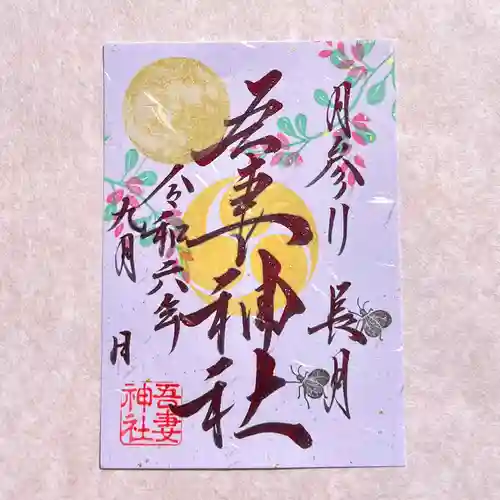 月参り 長月
吾妻神社
令和六年
九月 日
吾妻
神社